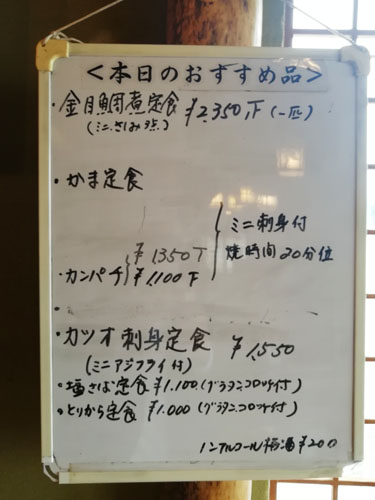 ＜本日のおすすめ品＞
・金目鯛煮定食 ¥2,350,下(一匹)
(ミニさしみ3点)
・かま定食
ミニ刺身付
¥1350下
焼時間20分位
・カンパチ ¥1,100下
カツオ刺身定食 ¥1,550
(ミニアジフライ付)
・塩さば定食¥1,100(グラタンコロッケ付)
・とりから定食 ¥1,000(グラタンコロッケ付)
ノンアルコール梅酒¥200